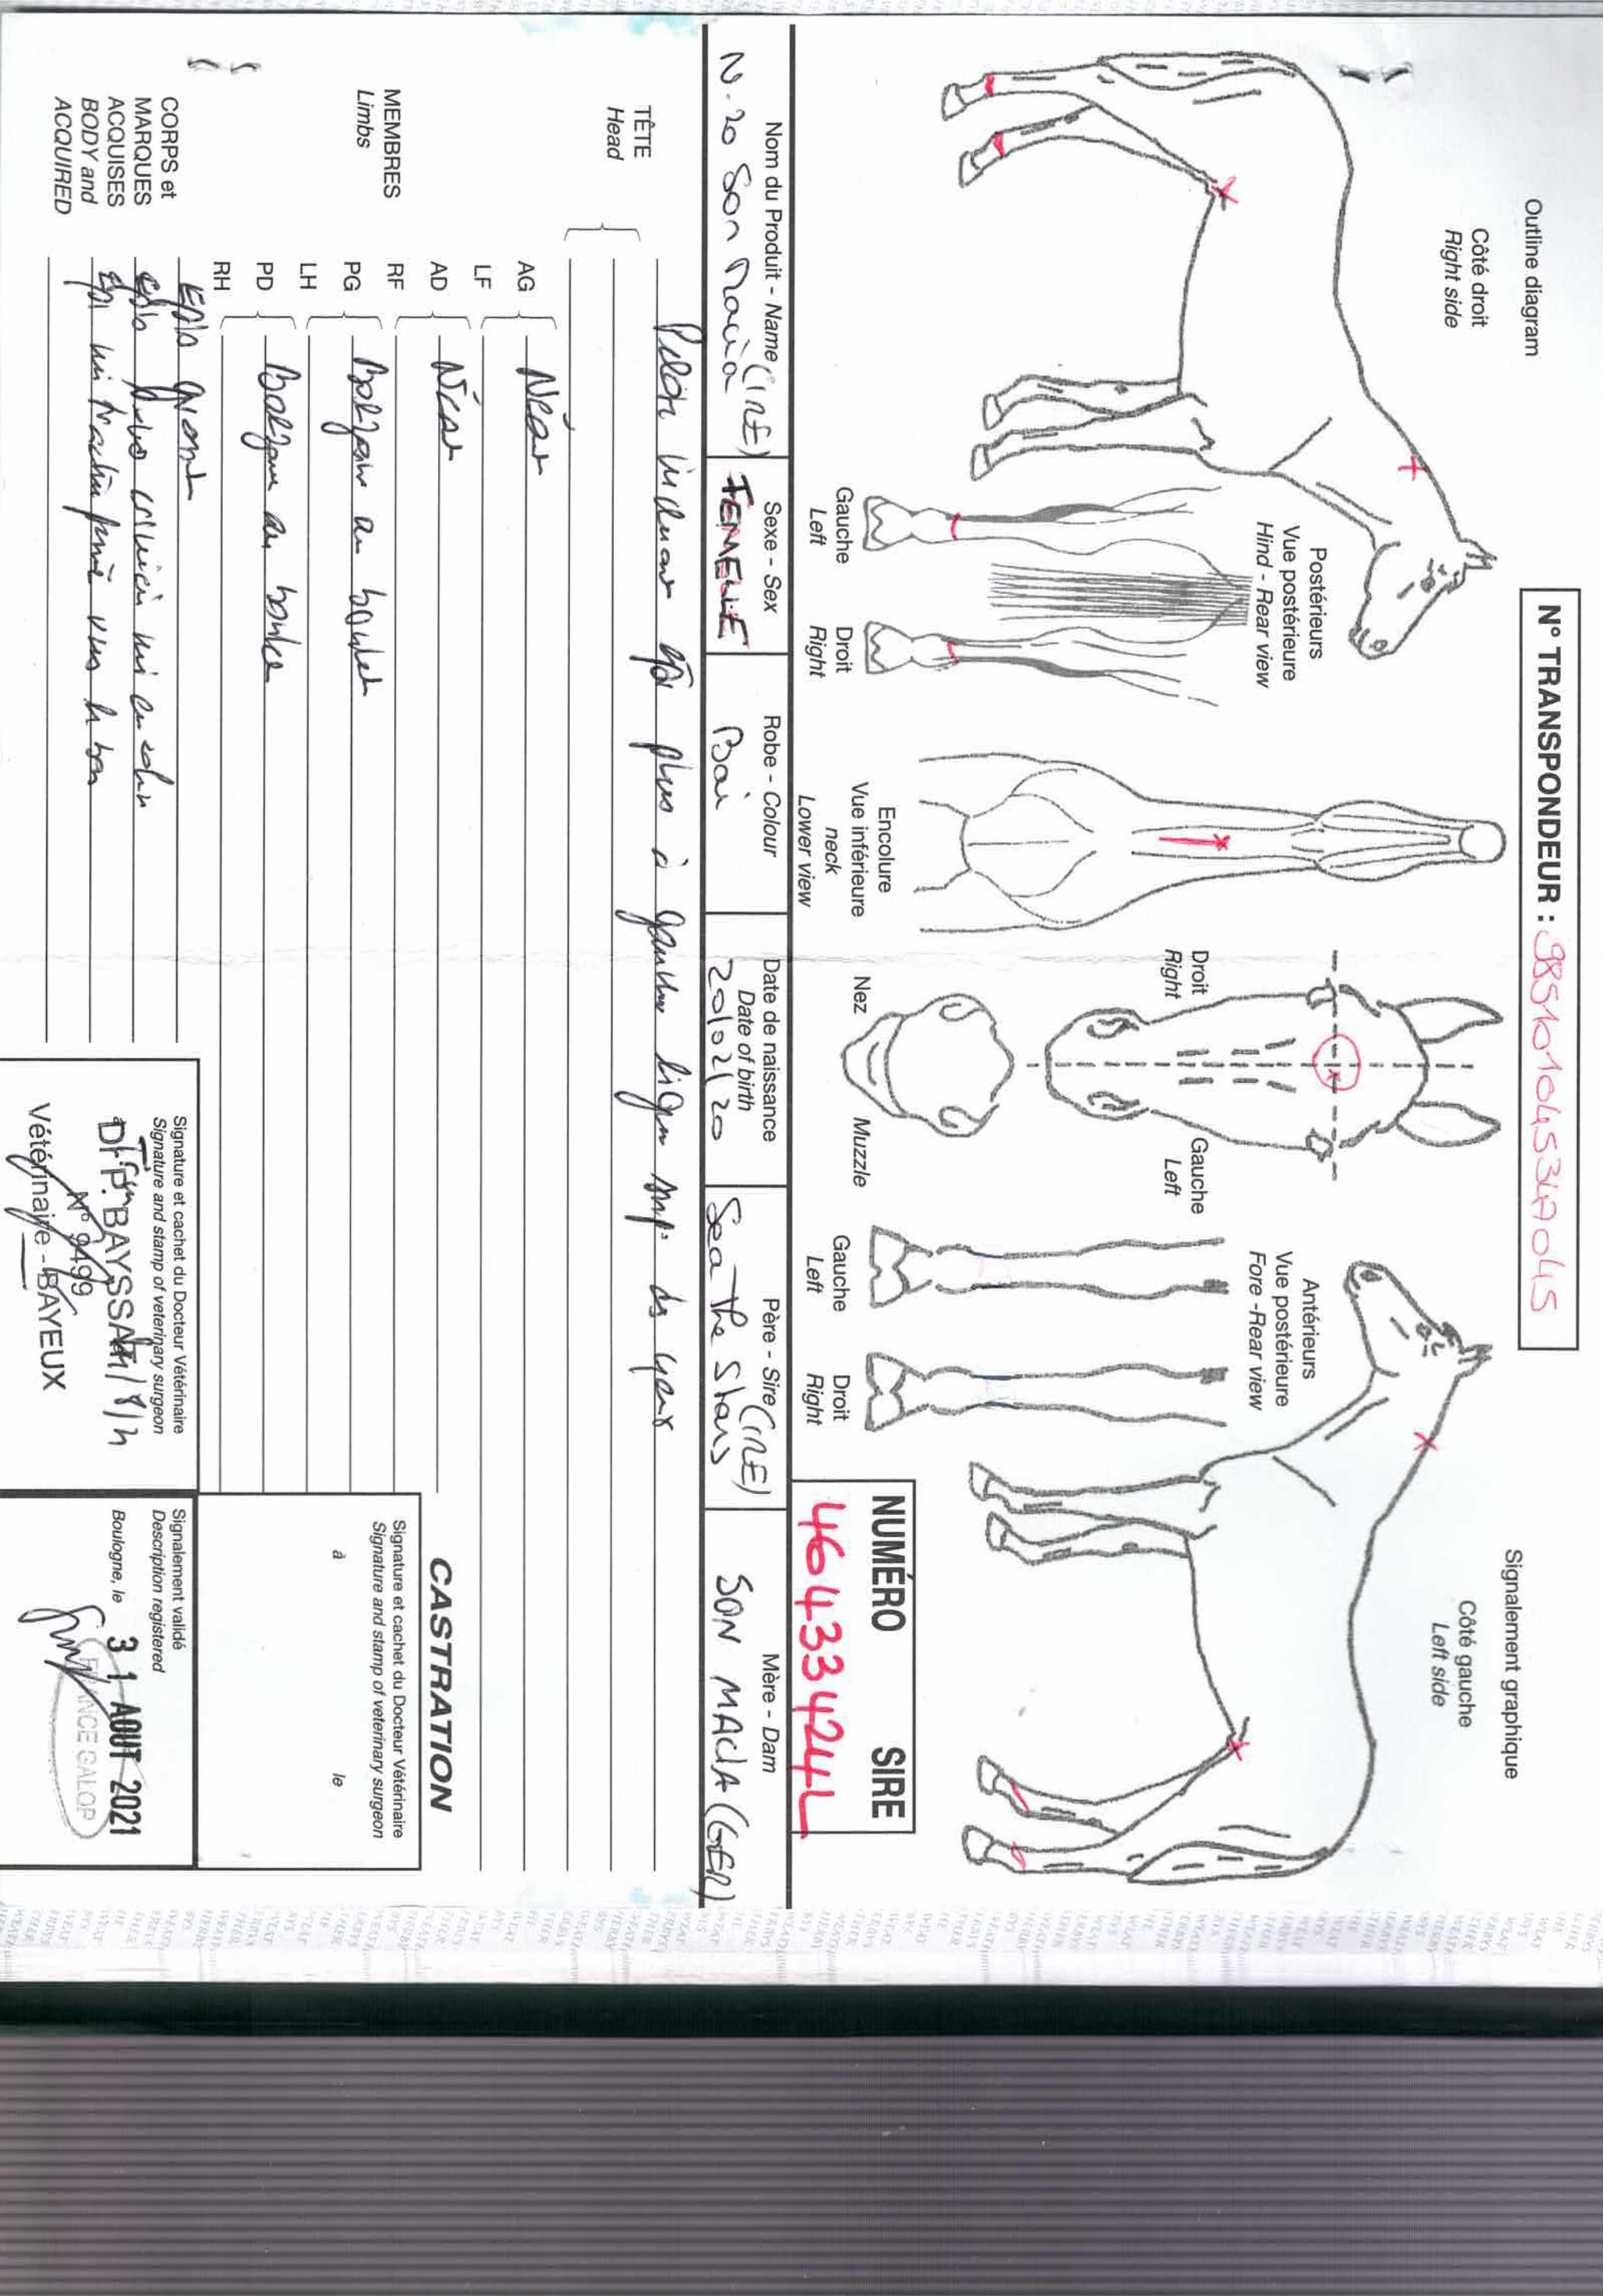 N° TRANSPONDEUR :
Outline diagram
Signalement graphique
Côté droit
Right side
Côté gauche
Left side
Postérieurs
Vue postérieure
Hind - Rear view
Gauche
Left
Droit
Right
Encolure
Vue inférieure
neck
Lower view
Droit
Right
Gauche
Left
Nez
Muzzle
Antérieurs
Vue postérieure
Fore -Rear view
Gauche
Left
Droit
Right
NUMÉRO SIRE
46433424L
Nom du Produit - Name (IRE)
N.20 Son Macia
Sexe - Sex
FEMELLE
Robe - Colour
Bai
Date de naissance
Date of birth
20/02/20
Père - Sire (IRE)
Sea The Stars
Mère - Dam
SON MACIA (GER)
TÊTE
Head
Pelote incluant épi plus à gauche ligne sup. des yeux
MEMBRES
Limbs
AG
LF
Néant
AD
RF
Néant
PG
LH
Balzane au boulet
PD
RH
Balzane au boulet
CORPS et
MARQUES
ACQUISES
BODY and
ACQUIRED
Epis grasset
épis mi encolure
épi mi trachée vers le bas
CASTRATION
Signature et cachet du Docteur Vétérinaire
Signature and stamp of veterinary surgeon
à
le
Signature et cachet du Docteur Vétérinaire
Signature and stamp of veterinary surgeon
Dr P. BAYSSAT
N° 9499
Vétérinaire - BAYEUX
Signalement validé
Description registered
Boulogne, le 31 AOUT 2021
FRANCE GALOP